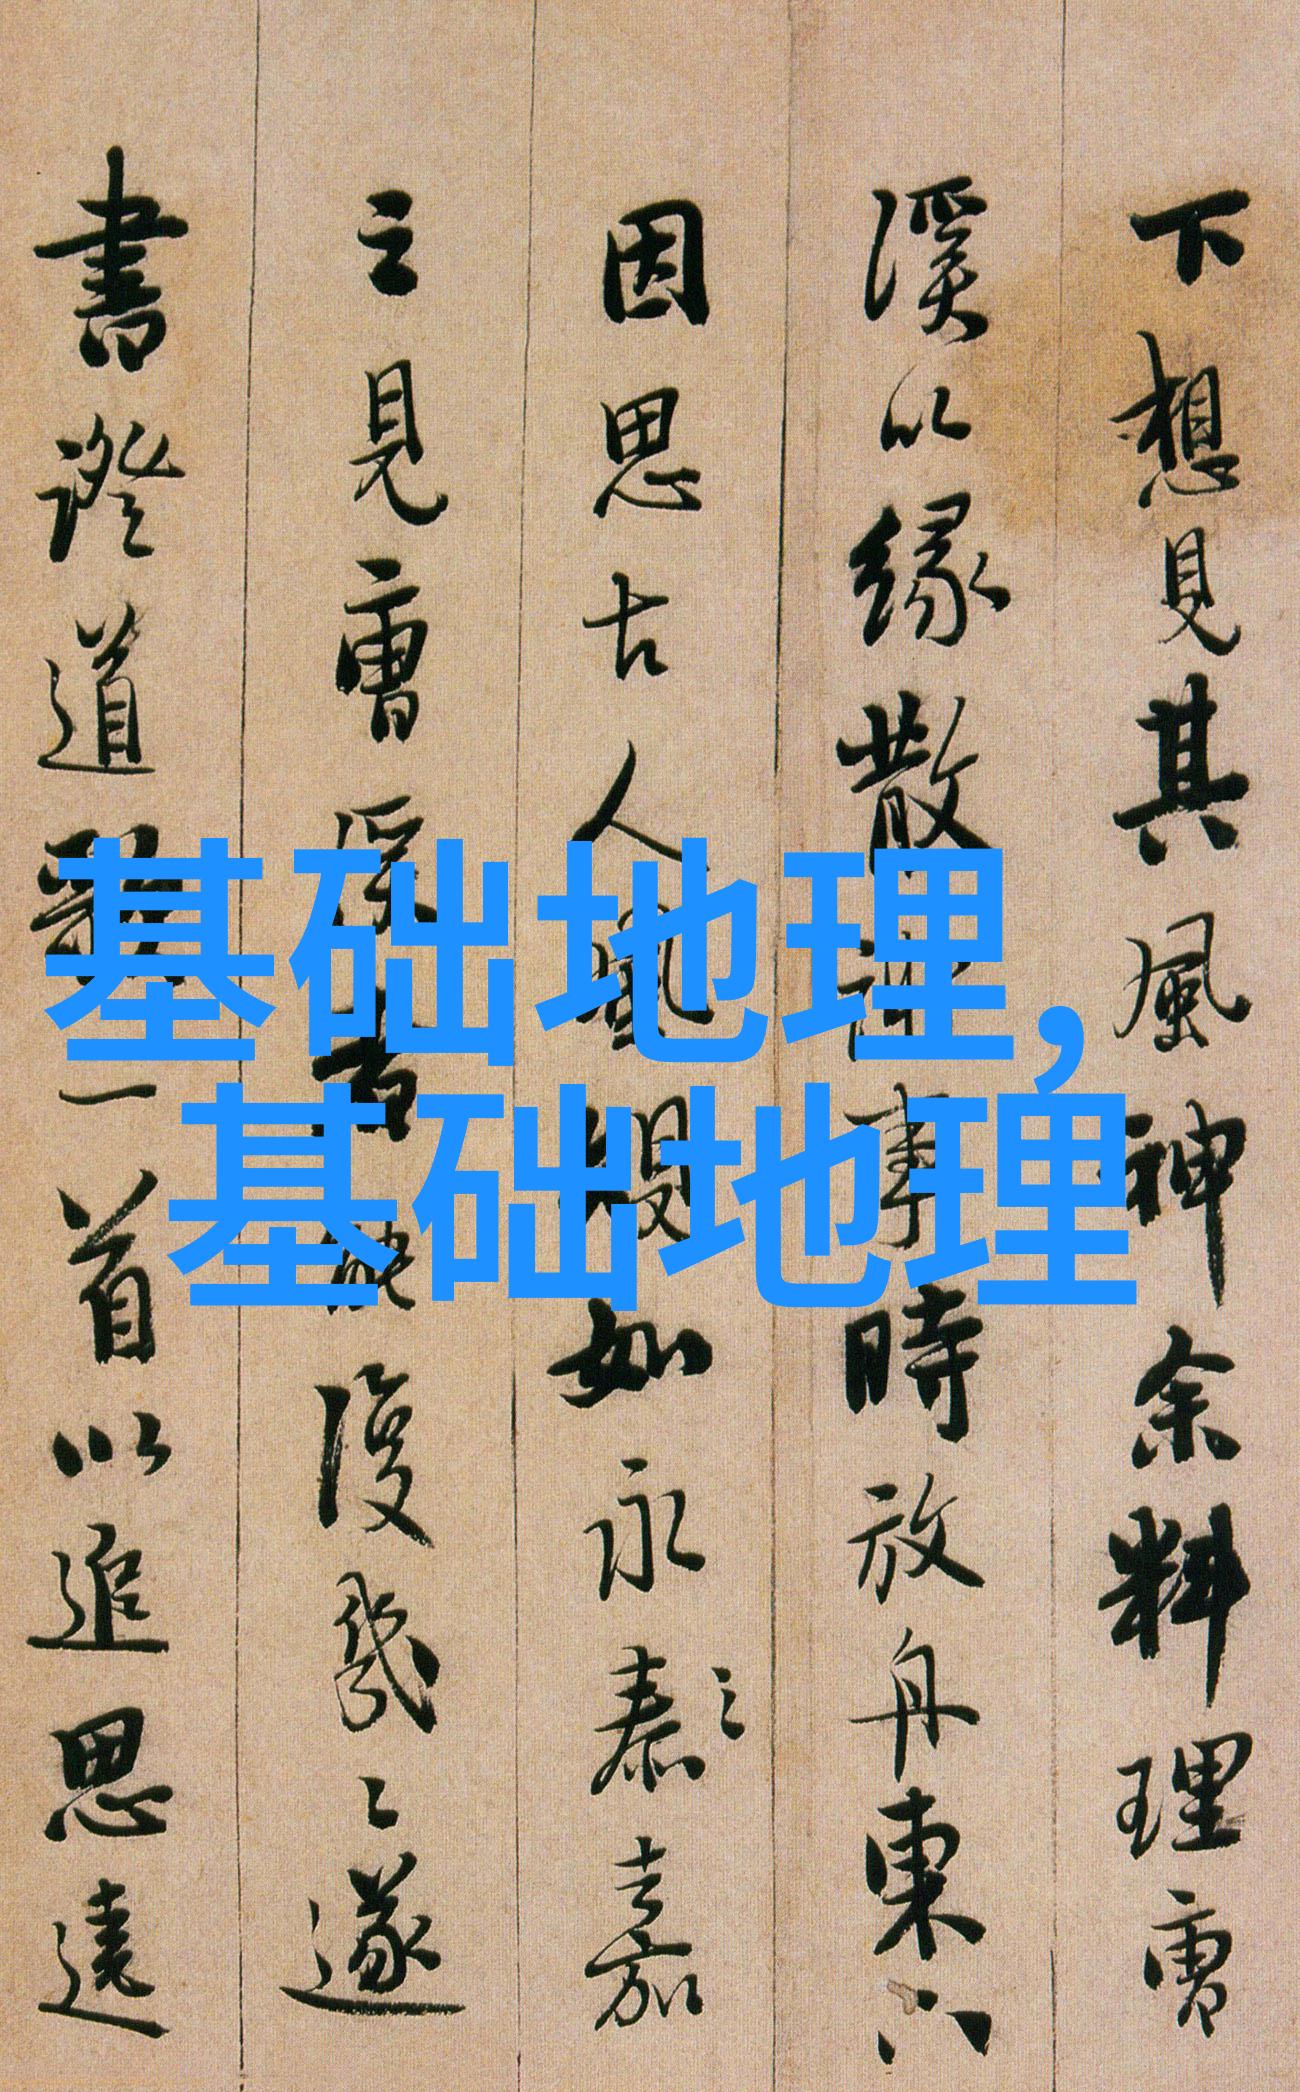 基础地理,
基础地理
下想見其風神余料理曹
溪以緣散事時放舟東
因思古人風如永泰之嘉
見曹溪能復幾遂
書證道歌一首以追思遠